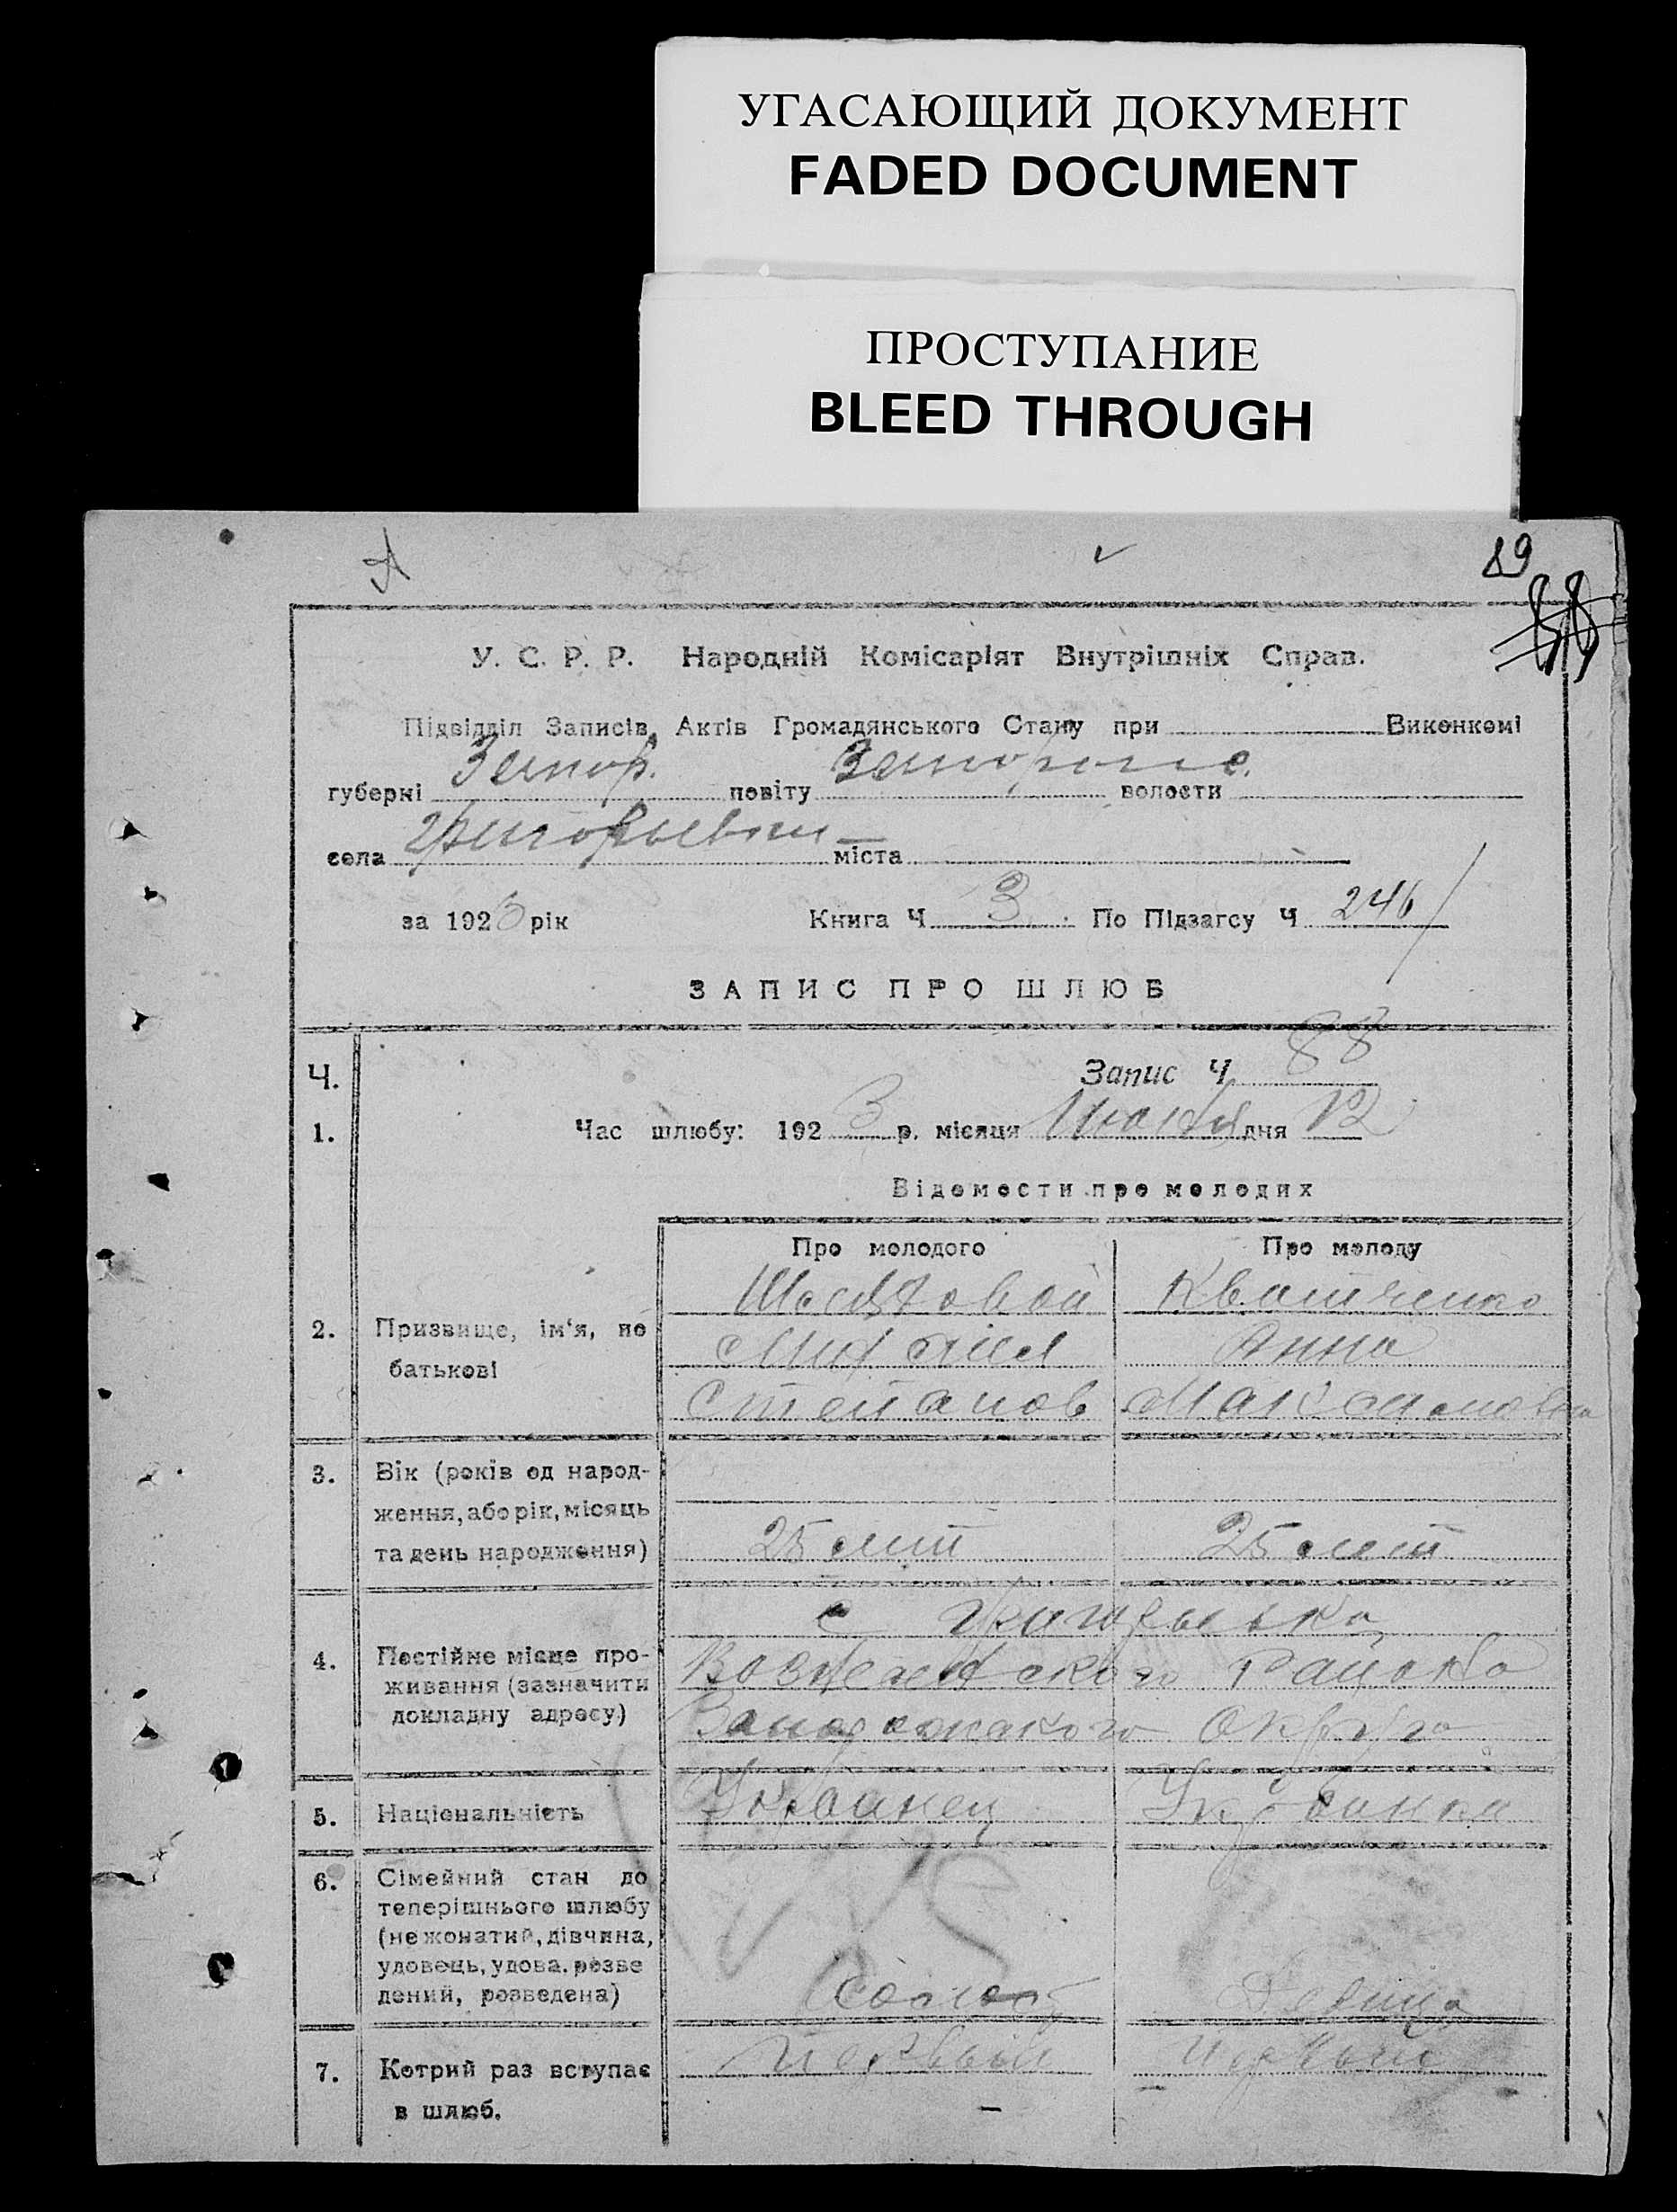 УГАСАЮЩИЙ ДОКУМЕНТ
FADED DOCUMENT
ПРОСТУПАНИЕ
BLEED THROUGH
А
89
У. С. Р. Р. Народній Комісаріят Внутрішніх Справ.
Підвідділ Записів Актів Громадянського Стану при Виконкомі
губерні Запор. повіту Запорож. волости
села Григорьевки міста
за 1923 рік Книга Ч 3 По Підзагсу Ч 246
ЗАПИС ПРО ШЛЮБ
Ч. Запис Ч 88
1. Час шлюбу: 1923 р. місяця дня 12
Відомости про молодих
Про молодого Про молоду
Квитченко
2. Призвище, ім'я, по Михаил Анна
батькові Степанов
3. Вік (років од народ-
ження, або рік, місяць
та день народження) 25 лет 25 лет
с
4. Постійне місце про- района
живання (зазначити
докладну адресу) Запорожского Округа
5. Національність Украинец Украинка
6. Сімейний стан до
теперішнього шлюбу
(не жонатий, дівчина,
удовець, удова. розве
дений, розведена) холост Девица
7. Котрий раз вступає Первый Первый
в шлюб.